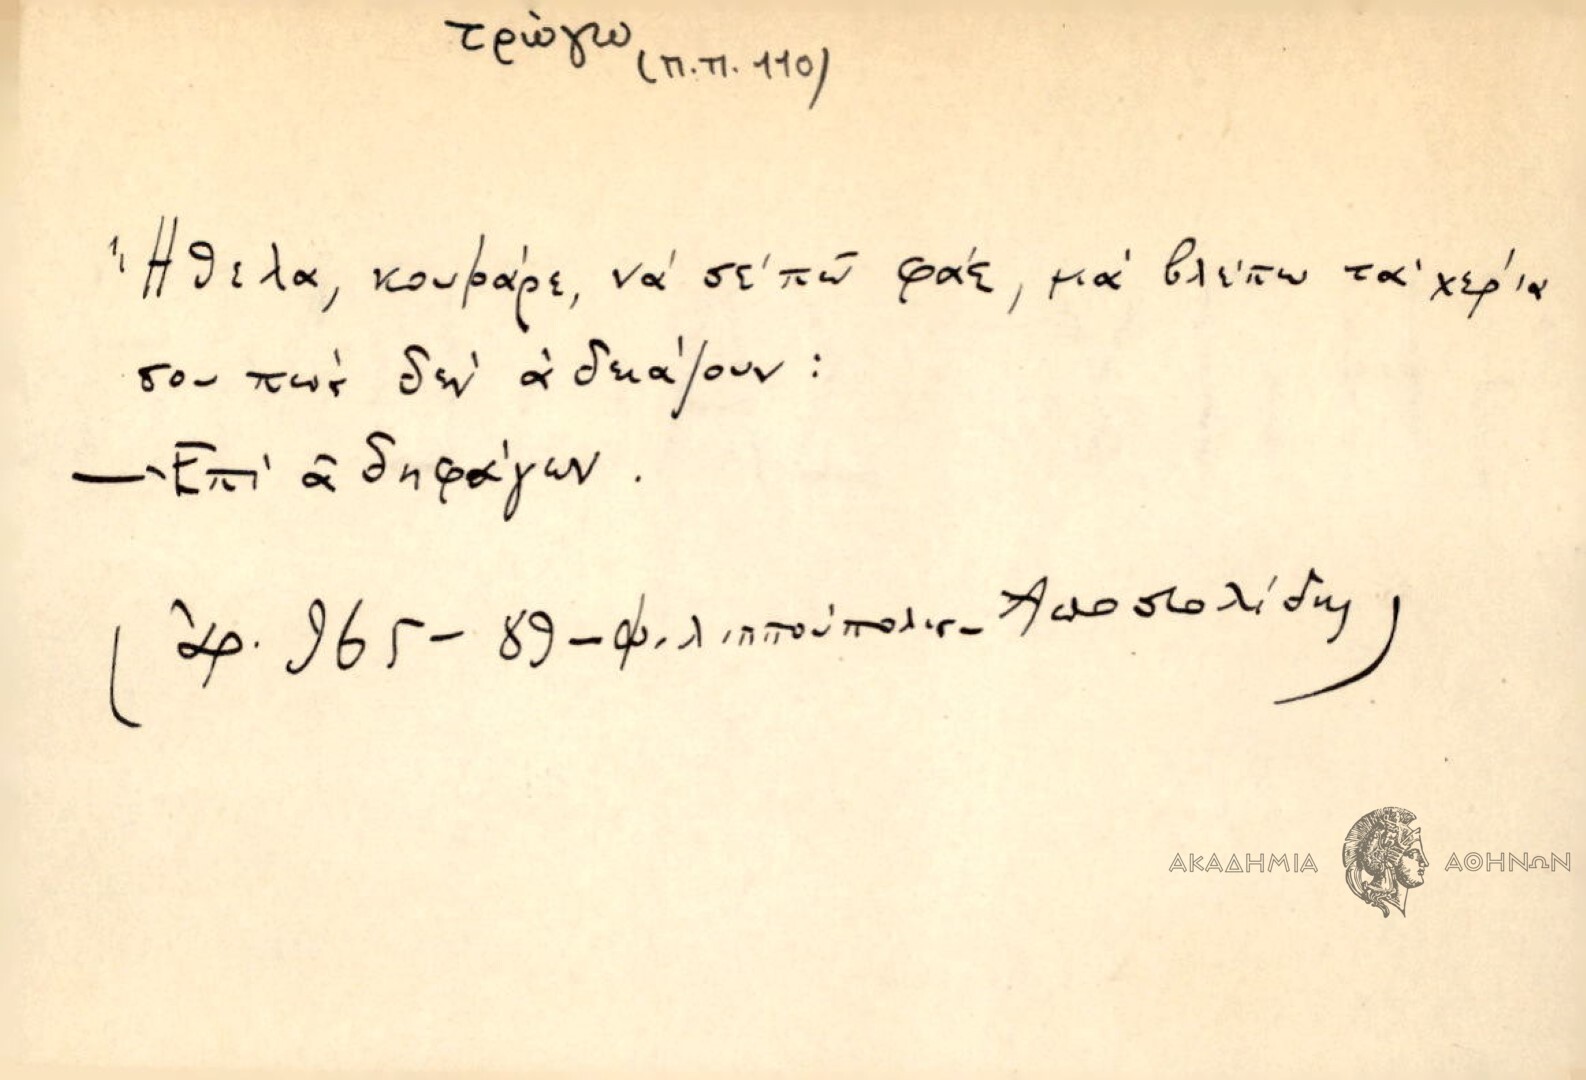 τρώγω (Π.Π. 110)
Ἤθελα, κουβάρε, νά σέ πῶ φάε, μά βλέπω τά χέρια
σου πως δέν ἀδειάζουν :
— Ἐπί ἀδηφάγων.
(ἀρ. 965 - 89 - Φιλιππούπολις - Ἀποστολίδης)
ΑΚΑΔΗΜΙΑ ΑΘΗΝΩΝ